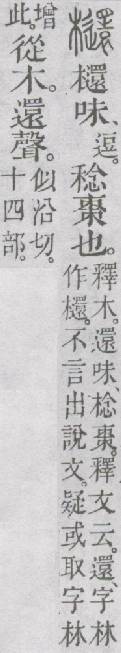 櫏櫏味、逗。稔棗也。釋木。還味、棯棗。釋文云。還、字林
作檈。不言出說文。疑或取字林
增
此。從木。還聲。似沿切。
十四部。